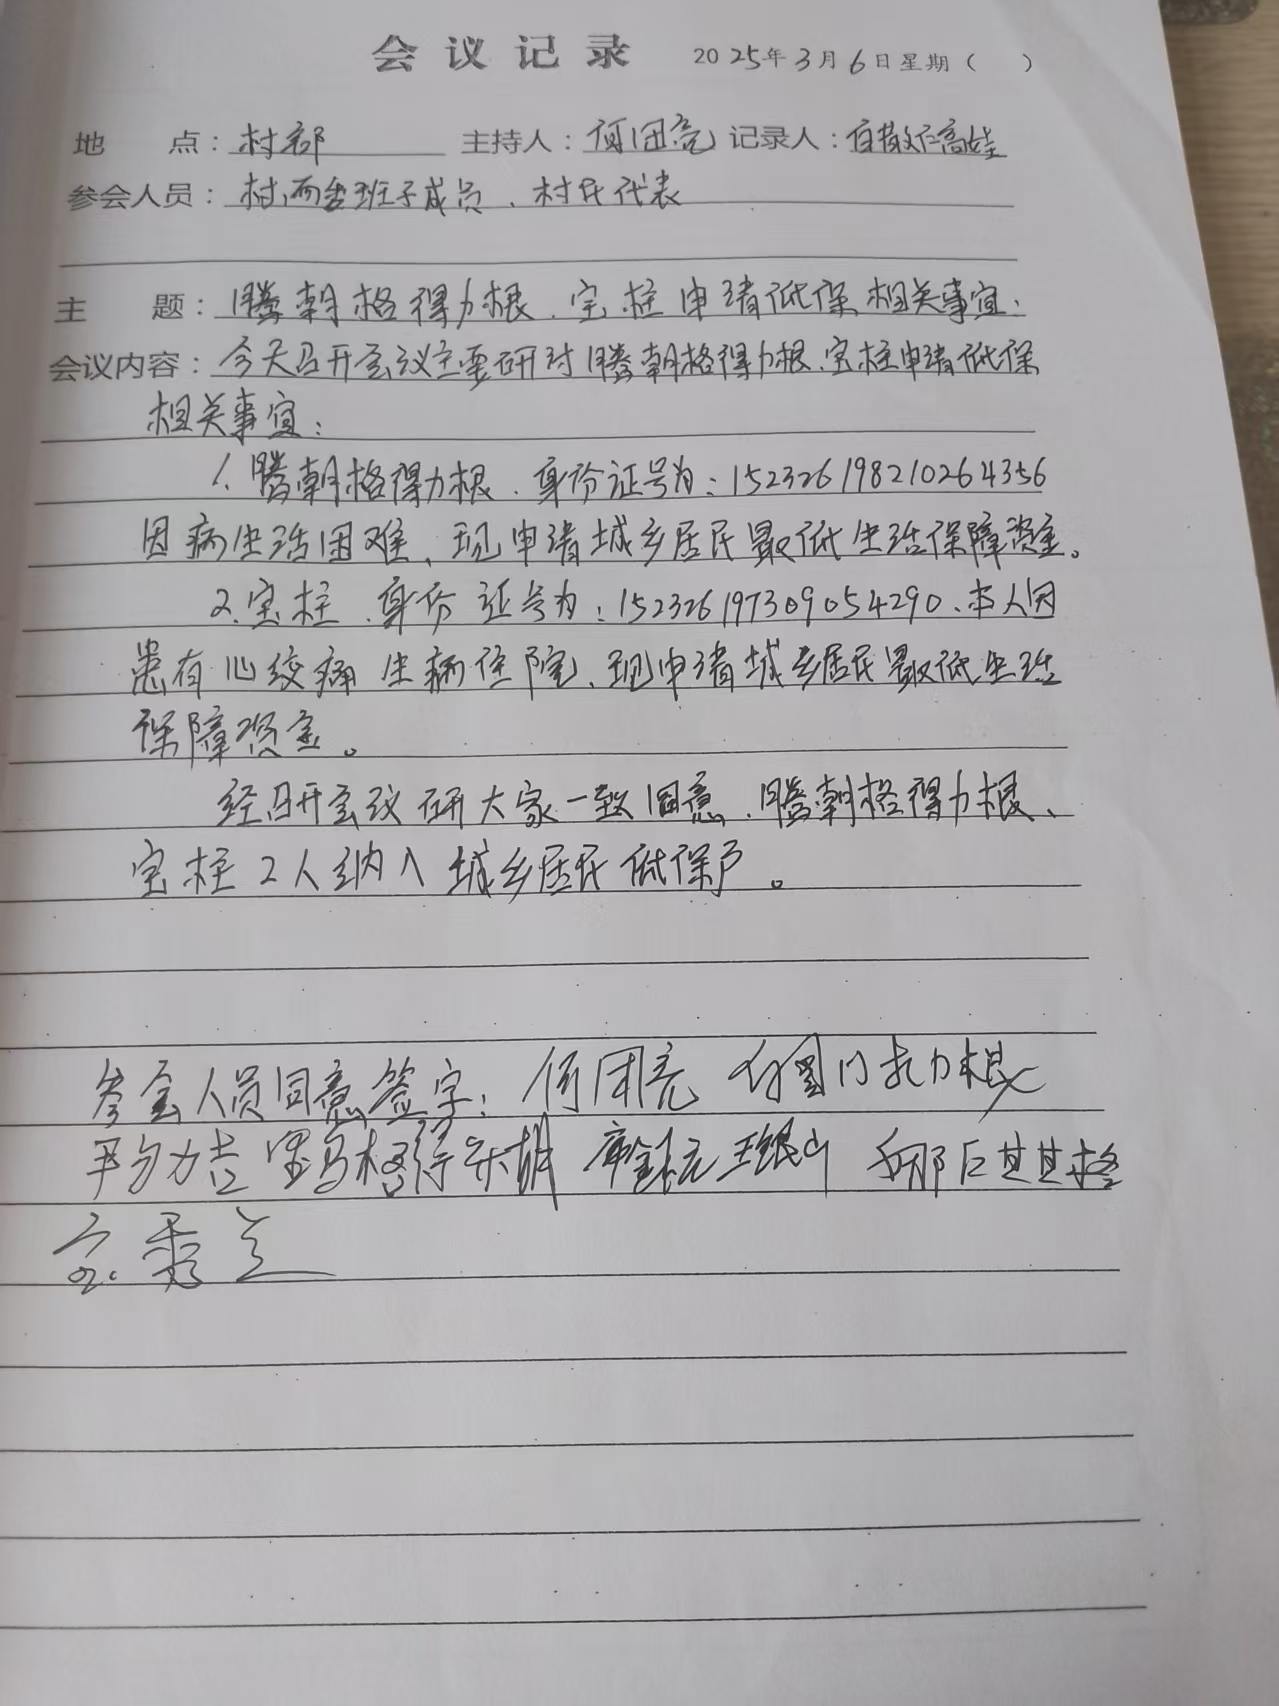 会议记录 2025年3月6日星期( )
地 点:村部 主持人:何团亮 记录人:白散仁高娃
参会人员:村两委班子成员、村民代表
主 题:腾朝格得力根、宝柱申请低保相关事宜:
会议内容:今天召开会议主要研讨腾朝格得力根、宝柱申请低保
相关事宜:
1、腾朝格得力根、身份证号为:152326198210264356
因病生活困难、现申请城乡居民最低生活保障资金。
2、宝柱、身份证号为:152326197309054290、本人因
患有心绞痛生病住院、现申请城乡居民最低生活
保障资金。
经召开会议研大家一致同意、腾朝格得力根、
宝柱2人纳入城乡居民低保户。
参会人员同意签字:何团亮